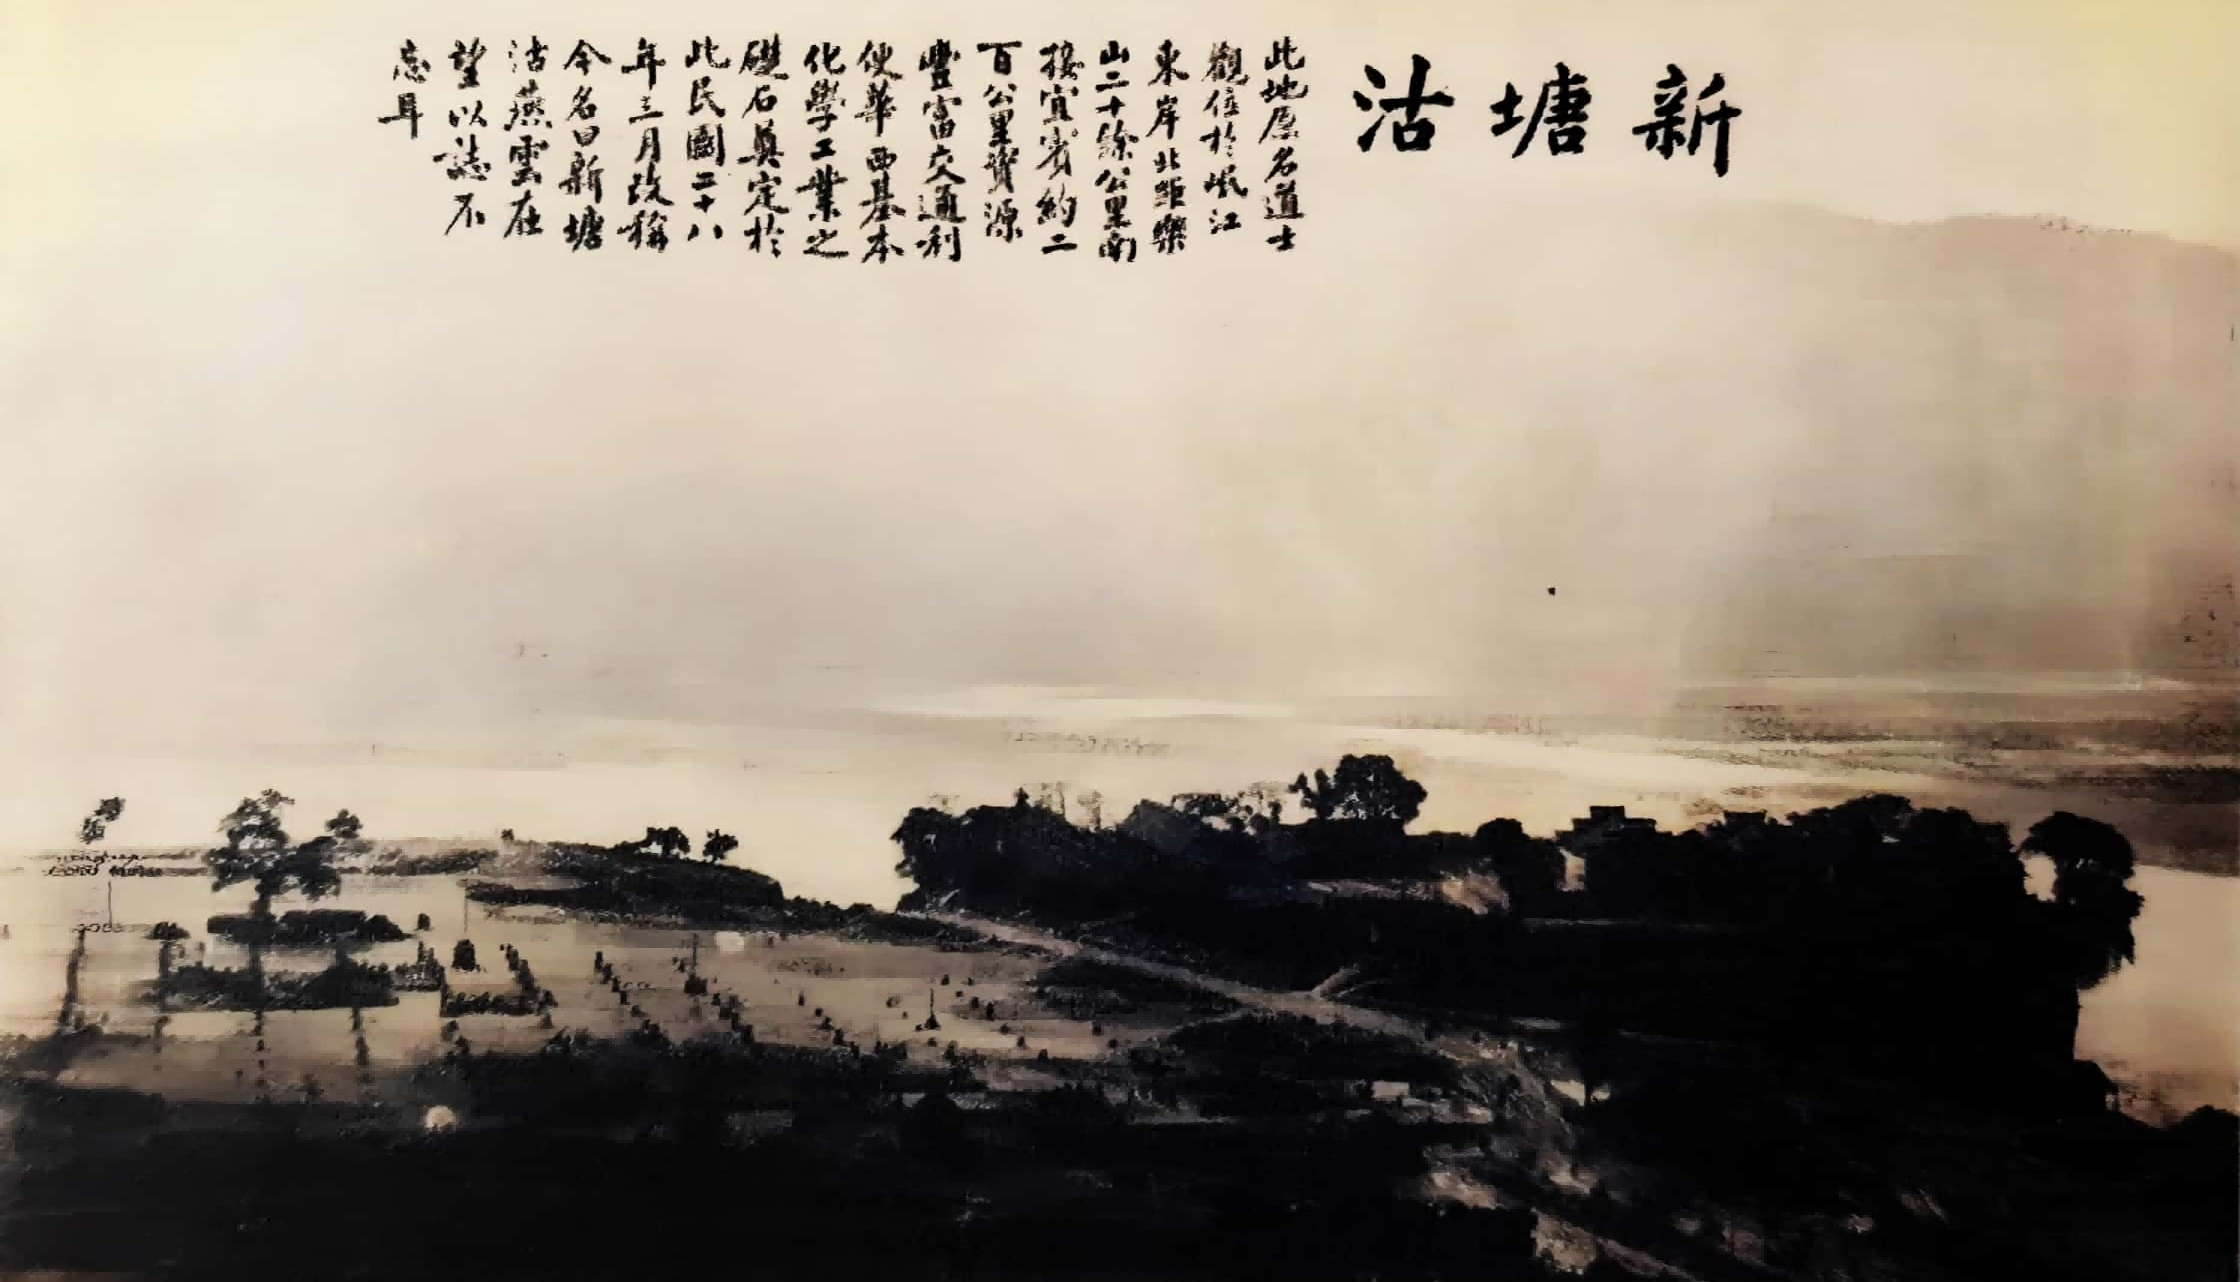 新塘沽
此地原名道士
觀位於岷江
東岸北距樂
山二十餘公里南
接宜賓約二
百公里資源
豐富交通利
便華西基本
化學工業之
礎石奠定於
此民國二十八
年三月改稱
今名曰新塘
沽燕雲在
望以誌不
忘耳